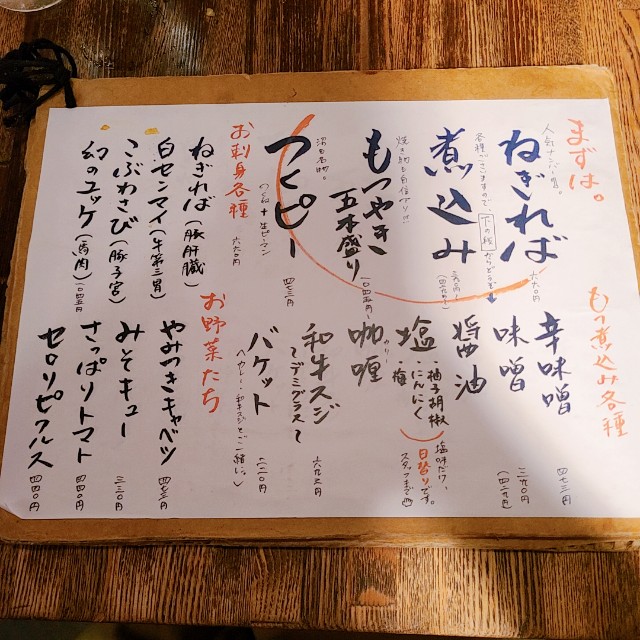 まずは。
人気ナンバー1。
ねぎればー
六六〇円
各種ございますので
下の段
からどうぞ
煮込み
焼き物も自信アリ!!
もつやき
五本盛り
一〇四五円〜
沼田名物。
つくピー
つくね+生ピーマン
四七三円
お刺身各種
六六〇円
ねぎれば(豚肝臓)
白センマイ(牛第三胃)
こぶわさび(豚子宮)
幻のユッケ(馬肉)
一〇四五円
もつ煮込み各種
辛味噌
四七三円
味噌
三九〇円
(四二九円)
醤油
塩
・柚子胡椒
・にんにく
・梅
塩味だけ、
日替りです。
スタッフまで
カリー
咖喱
和牛スジ
〜デミグラス〜
六九三円
バケット
へカリー・和牛スジとご一緒に。
二二〇円
お野菜たち
やみつきキャベツ
四七三円
みそキュー
三三〇円
さっぱりトマト
四四〇円
セロリピクルス
四四〇円